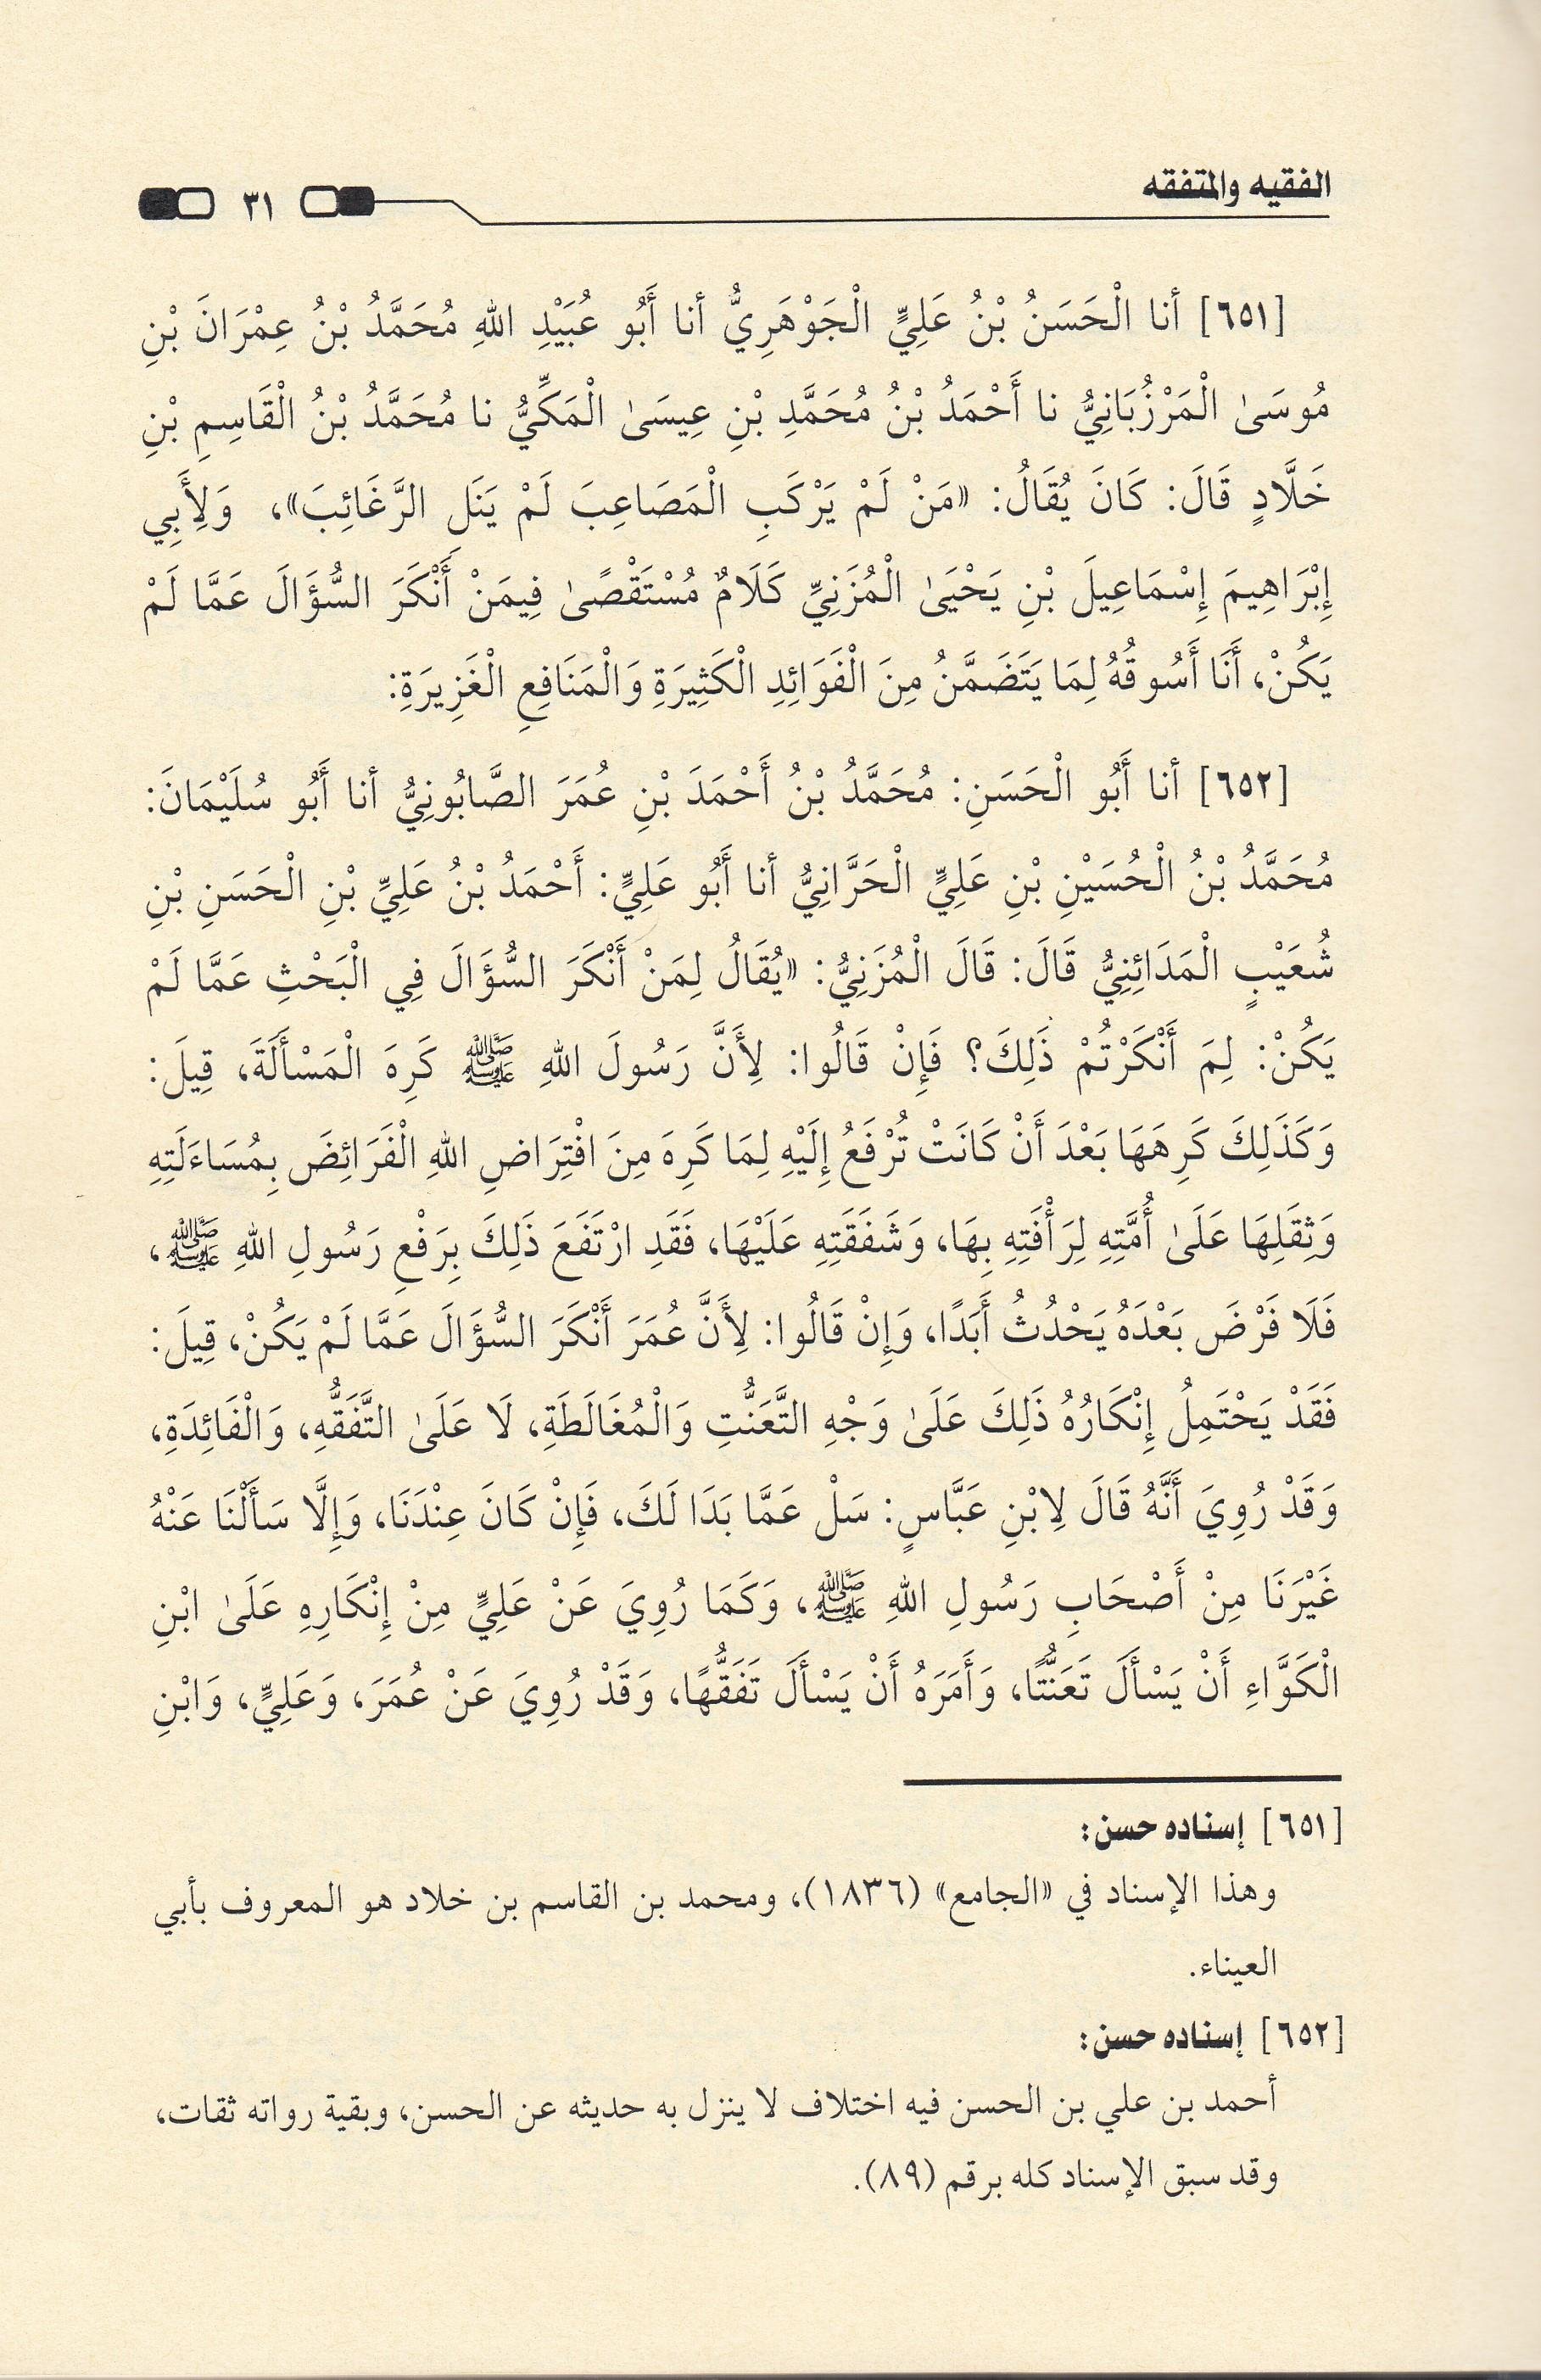 الفقيه والمتفقه
٣١
[٦٥١] أنا الْحَسَنُ بْنُ عَلِيٍّ الْجَوْهَرِيُّ أنا أَبُو عُبَيْدِ اللهِ مُحَمَّدُ بْنُ عِمْرَانَ بْنِ
مُوسَىٰ الْمَرْزُبَانِيُّ نا أَحْمَدُ بْنُ مُحَمَّدِ بْنِ عِيسَىٰ الْمَكِّيُّ نا مُحَمَّدُ بْنُ الْقَاسِمِ بْنِ
خَلَّادٍ قَالَ: كَانَ يُقَالُ: «مَنْ لَمْ يَرْكَبِ الْمَصَاعِبَ لَمْ يَنَلِ الرَّغَائِبَ»، وَلِأَبِي
إِبْرَاهِيمَ إِسْمَاعِيلَ بْنِ يَحْيَىٰ الْمُزَنِيِّ كَلَامٌ مُسْتَقْصًىٰ فِيمَنْ أَنْكَرَ السُّؤَالَ عَمَّا لَمْ
يَكُنْ، أَنَا أَسُوقُهُ لِمَا يَتَضَمَّنُ مِنَ الْفَوَائِدِ الْكَثِيرَةِ وَالْمَنَافِعِ الْغَزِيرَةِ:
[٦٥٢] أنا أَبُو الْحَسَنِ: مُحَمَّدُ بْنُ أَحْمَدَ بْنِ عُمَرَ الصَّابُونِيُّ أنا أَبُو سُلَيْمَانَ:
مُحَمَّدُ بْنُ الْحُسَيْنِ بْنِ عَلِيٍّ الْحَرَّانِيُّ أنا أَبُو عَلِيٍّ: أَحْمَدُ بْنُ عَلِيِّ بْنِ الْحَسَنِ بْنِ
شُعَيْبٍ الْمَدَائِنِيُّ قَالَ: قَالَ الْمُزَنِيُّ: «يُقَالُ لِمَنْ أَنْكَرَ السُّؤَالَ فِي الْبَحْثِ عَمَّا لَمْ
يَكُنْ: لِمَ أَنْكَرْتُمْ ذَلِكَ؟ فَإِنْ قَالُوا: لِأَنَّ رَسُولَ اللهِ ﷺ كَرِهَ الْمَسْأَلَةَ، قِيلَ:
وَكَذَلِكَ كَرِهَهَا بَعْدَ أَنْ كَانَتْ تُرْفَعُ إِلَيْهِ لِمَا كَرِهَ مِنَ افْتِرَاضِ اللهِ الْفَرَائِضَ بِمُسَاءَلَتِهِ
وَثِقَلِهَا عَلَىٰ أُمَّتِهِ لِرَأْفَتِهِ بِهَا، وَشَفَقَتِهِ عَلَيْهَا، فَقَدِ ارْتَفَعَ ذَلِكَ بِرَفْعِ رَسُولِ اللهِ ﷺ،
فَلَا فَرْضَ بَعْدَهُ يَحْدُثُ أَبَدًا، وَإِنْ قَالُوا: لِأَنَّ عُمَرَ أَنْكَرَ السُّؤَالَ عَمَّا لَمْ يَكُنْ، قِيلَ:
فَقَدْ يَحْتَمِلُ إِنْكَارُهُ ذَلِكَ عَلَىٰ وَجْهِ التَّعَنُّتِ وَالْمُغَالَطَةِ، لَا عَلَىٰ التَّفَقُّهِ، وَالْفَائِدَةِ،
وَقَدْ رُوِيَ أَنَّهُ قَالَ لِابْنِ عَبَّاسٍ: سَلْ عَمَّا بَدَا لَكَ، فَإِنْ كَانَ عِنْدَنَا، وَإِلَّا سَأَلْنَا عَنْهُ
غَيْرَنَا مِنْ أَصْحَابِ رَسُولِ اللهِ ﷺ، وَكَمَا رُوِيَ عَنْ عَلِيٍّ مِنْ إِنْكَارِهِ عَلَىٰ ابْنِ
الْكَوَّاءِ أَنْ يَسْأَلَ تَعَنُّتًا، وَأَمَرَهُ أَنْ يَسْأَلَ تَفَقُّهًا، وَقَدْ رُوِيَ عَنْ عُمَرَ، وَعَلِيٍّ، وَابْنِ
[٦٥١] إسناده حسن:
وهذا الإسناد في «الجامع» (١٨٣٦)، ومحمد بن القاسم بن خلاد هو المعروف بأبي
العيناء.
[٦٥٢] إسناده حسن:
أحمد بن علي بن الحسن فيه اختلاف لا ينزل به حديثه عن الحسن، وبقية رواته ثقات،
وقد سبق الإسناد كله برقم (٨٩).